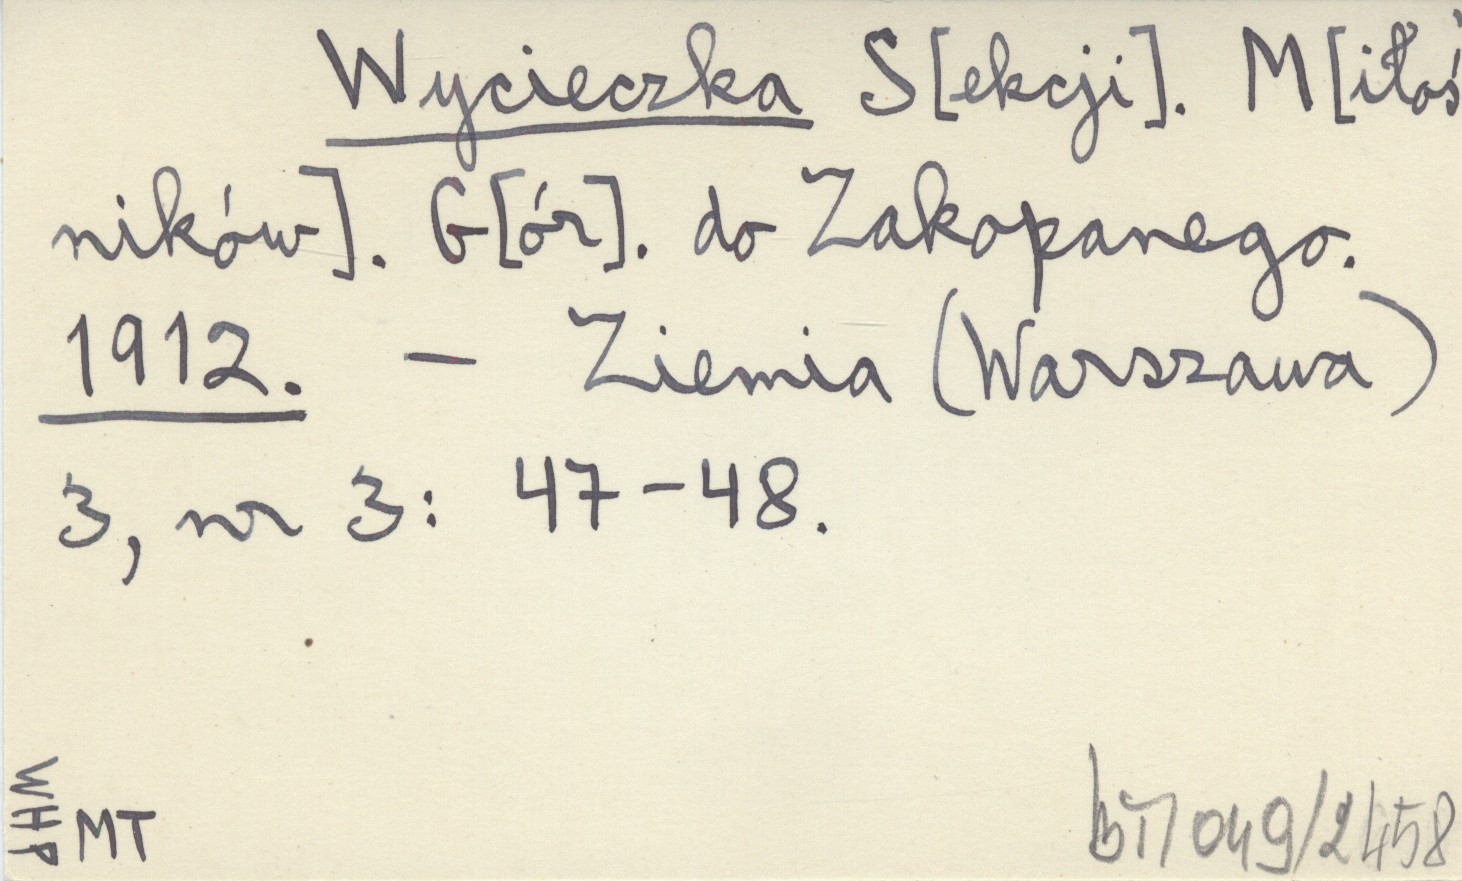 Wycieczka S[ekcji]. M[iłoś
ników]. G[ór]. do Zakopanego.
1912. — Ziemia (Warszawa)
3, nr 3: 47-48.
WHP
MT
049/2458